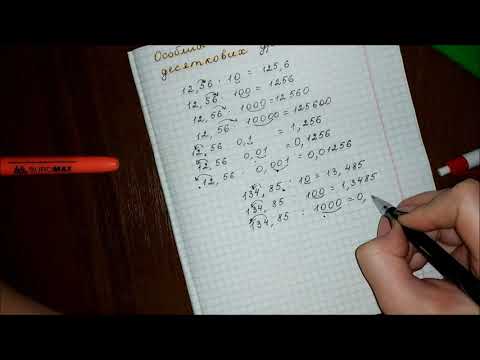 Особли
десяткових др
12,56 · 10 = 125,6
12,56 · 100 = 1256
12,56 · 1000 = 12560
12,56 · 10000 = 125600
12,56 · 0,1 = 1,256
12,56 · 0,01 = 0,1256
12,56 · 0,001 = 0,01256
134,85 : 10 = 13,485
134,85 : 100 = 1,3485
134,85 : 1000 = 0,
BUROMAX